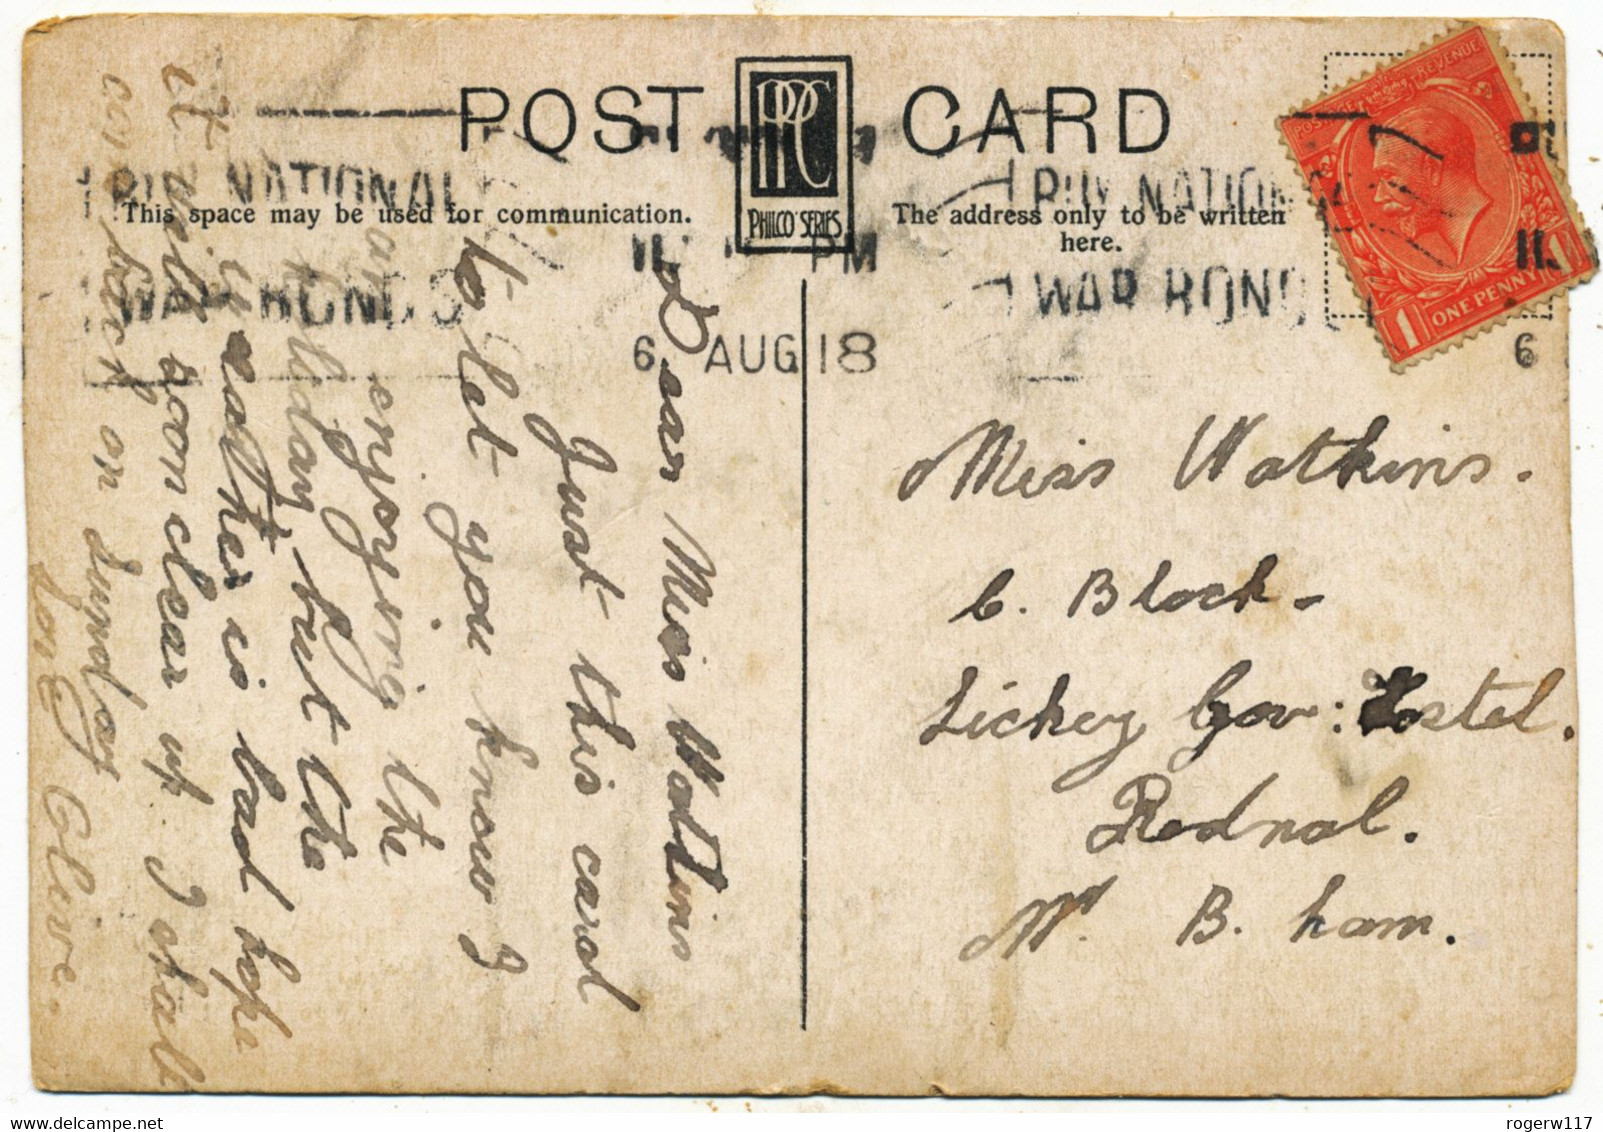 POST CARD
PHILCO SERIES
This space may be used for communication.
The address only to be written
here.
BUY NATIONAL
WAR BONDS
PM
6 AUG 18
BUY NATION
WAR BOND
6
POSTAGE REVENUE
1 ONE PENNY 1
Dear Miss Watkins
Just this card
to let you know I
am enjoying the
holiday but the
weather is bad hope
it will soon clear up. I shall
come back on Sunday
Clive.
Miss Watkins.
C. Block -
Lickey Gov: Hostel.
Rednal.
Nr B. ham.
rogerw117